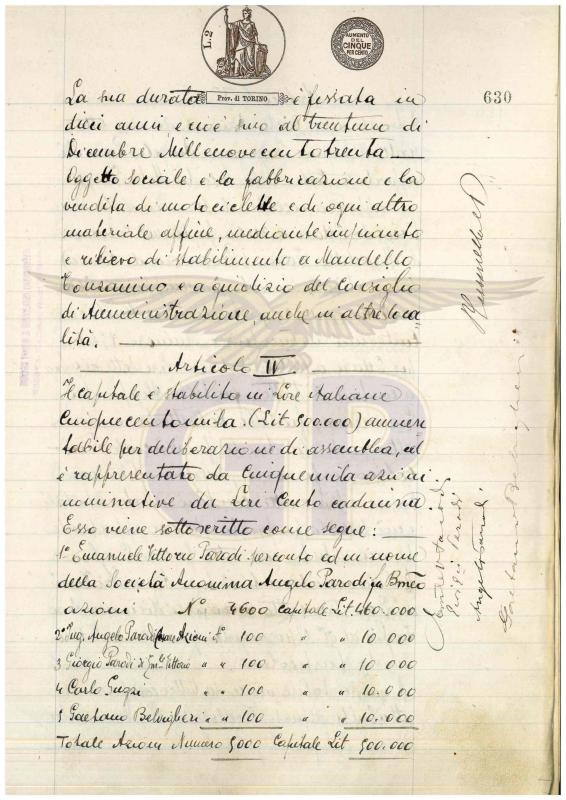 L. 2
AUMENTO
DEL
CINQUE
PER CENTO
Prov. di TORINO
630
La sua durata è fissata in
dieci anni, e cioè sino al trentuno di
Dicembre Millenovecentotrenta.
Oggetto sociale è la fabbricazione e la
vendita di motociclette e di ogni altro
materiale affine, mediante impianto
e rilievo di stabilimento a Mandello
Tonzanino e a giudizio del Consiglio
di Amministrazione, anche in altre loca
lità.
Articolo II
Il capitale è stabilito in Lire italiane
Cinquecentomila. (Lit 500.000) aumen
tabile per deliberazione di assemblea, ed
è rappresentato da Cinquemila azioni
nominative da Lire Cento cadauna
Esso viene sottoscritto come segue:
1° Emanuele Vittorio Parodi per conto ed in nome
della Società Anonima Angelo Parodi fu Bmeo
azioni N° 4600 capitale Lit 460.000
2° Ing. Angelo Parodi Azioni 100 " " 10.000
3 Giorgio Parodi di Em.le Vittorio " " 100 " " 10.000
4 Carlo Guzzi " " 100 " " 10.000
5 Gaetano Belvigheri " " 100 " " 10.000
Totale Azioni Numero 5000 Capitale Lit 500.000
Giorgio Parodi
Angelo Parodi
Gaetano Belvigheri
GP